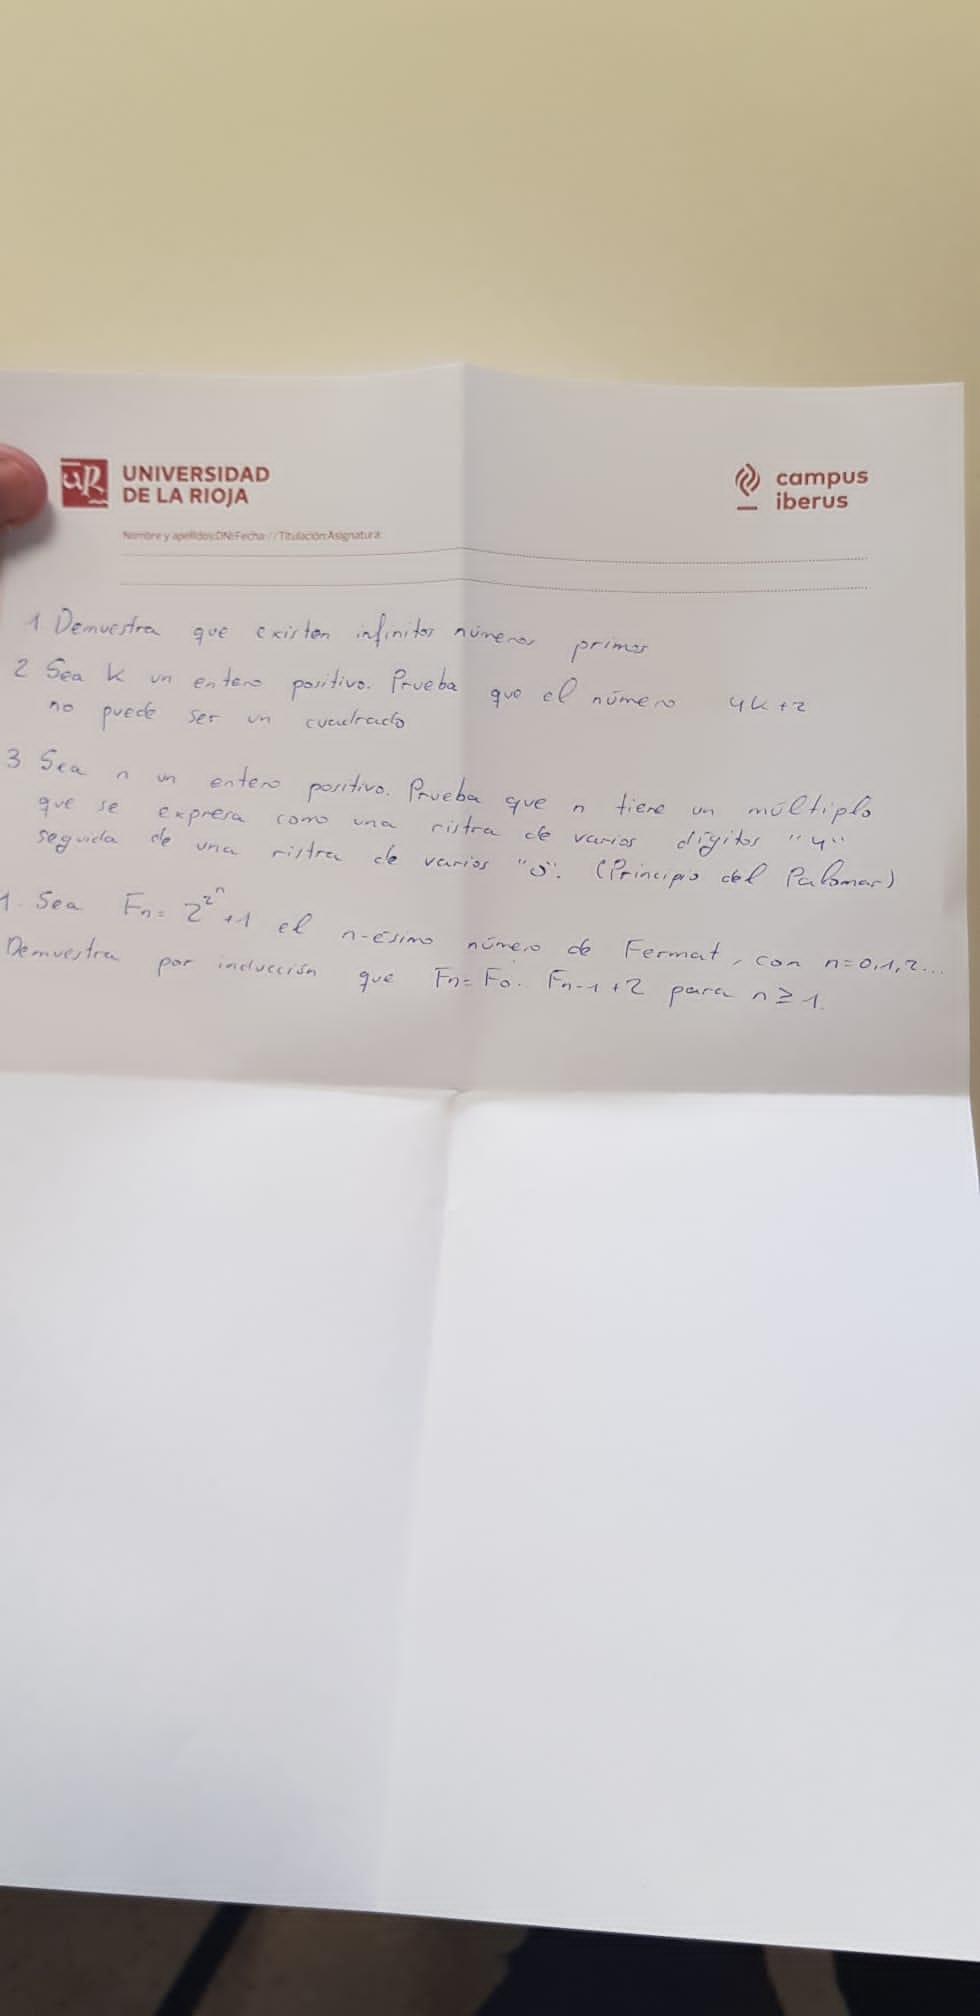 UNIVERSIDAD
DE LA RIOJA
campus
iberus
Nombre y apellidos:DNI:Fecha: / / Titulación:Asignatura:
1 Demuestra que existen infinitos números primos
2 Sea k un entero positivo. Prueba que el número 4k+2
no puede ser un cuadrado
3 Sea n un entero positivo. Prueba que n tiene un múltiplo
que se expresa como una ristra de varios dígitos "4"
seguida de una ristra de varios "0". (Principio del Palomar)
1. Sea Fn= 2^2^n+1 el n-ésimo número de Fermat, con n=0,1,2...
Demuestra por inducción que Fn= F0... Fn-1+2 para n≥1.